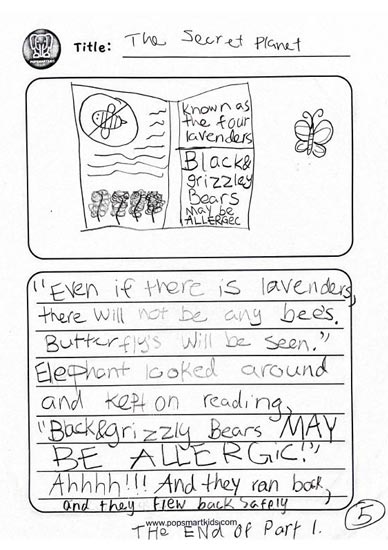 POPSMARTKIDS
Title: The Secret Planet
known as
the four
lavenders
Black&
grizzley
Bears
may be
ALLERGEC
"Even if there is lavenders,
there will not be any bees.
Butterfly's will be seen."
Elephant looked around
and kept on reading,
"Back&grizzly Bears MAY
BE ALLERGiC!"
Ahhhh!!! And they ran back,
and they flew back safely
www.popsmartkids.com
THE END OF Part 1.
5